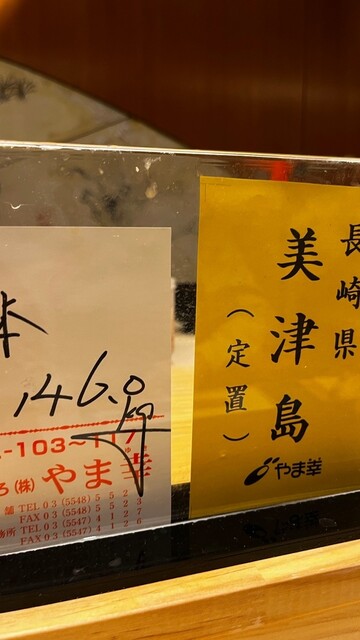 本
146.0
kg
-103~117
ろ(株)やま幸
舗 TEL 03 (5548) 5 5 2
FAX 03 (5548) 5 5 2 3
務所 TEL 03 (5547) 4 1 2
FAX 03 (5547) 4 1 2 8
長崎県
美津島
(定置)
やま幸